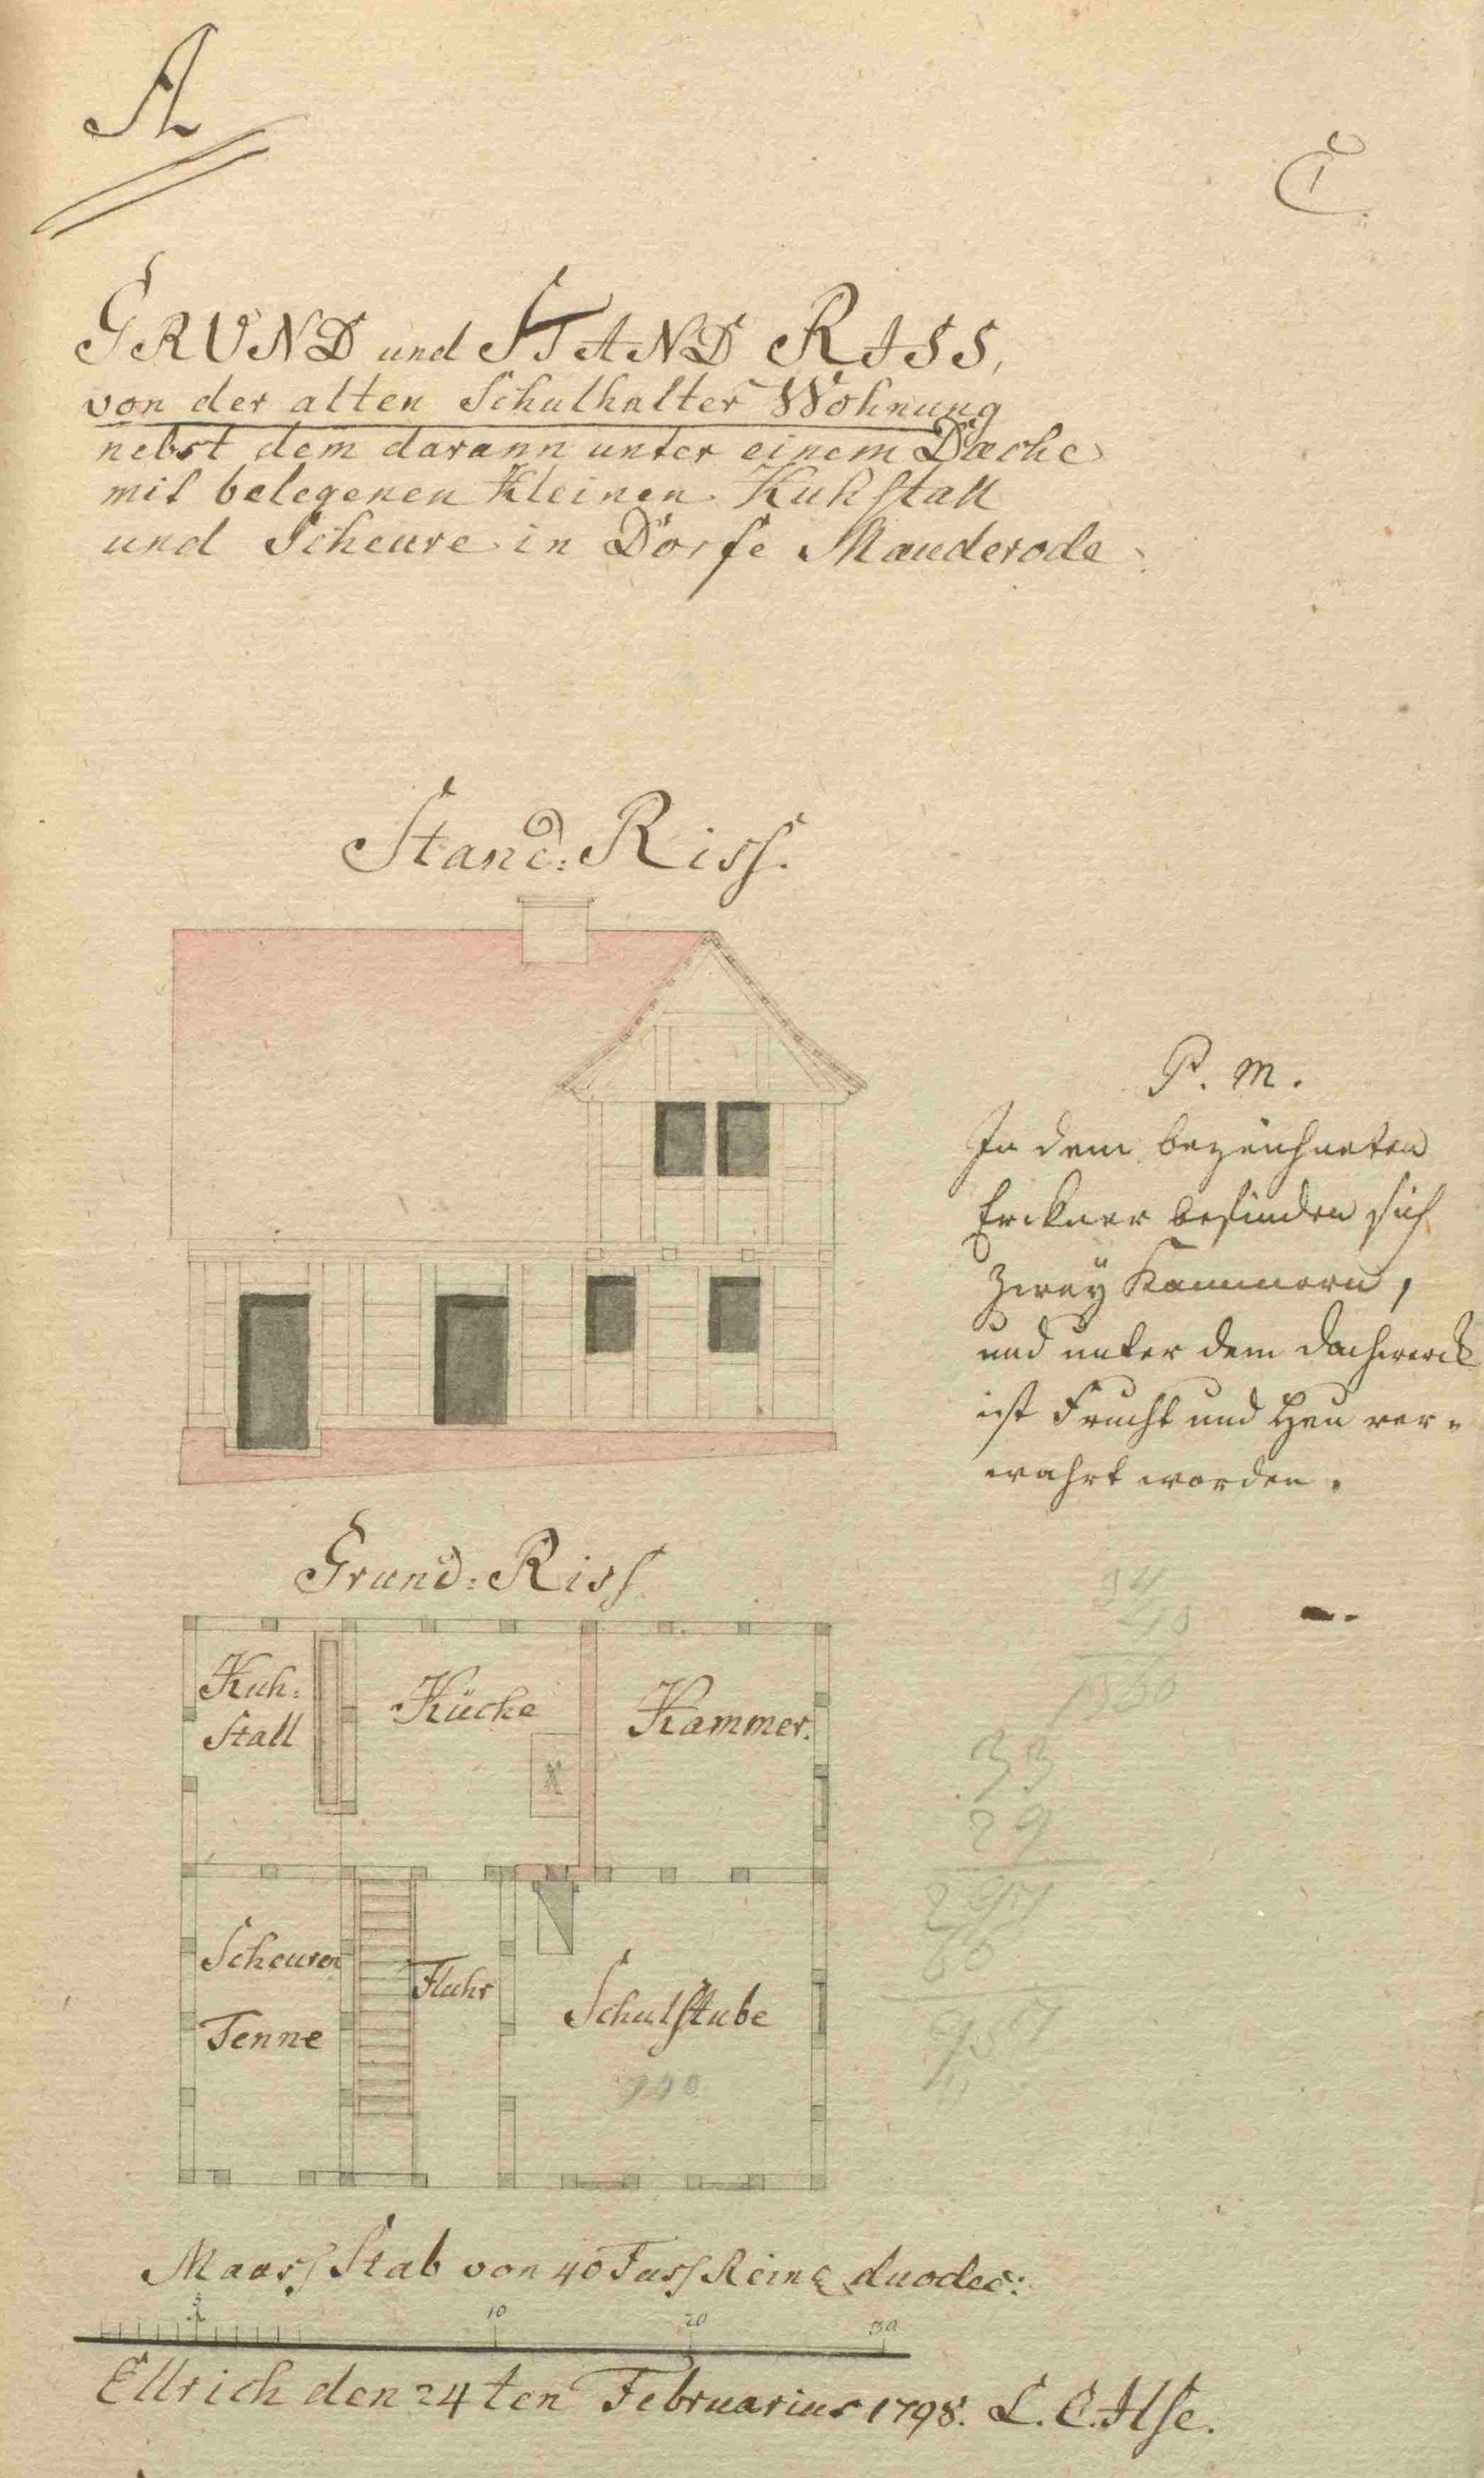 A
GRUND und STAND RISS,
von der alten Schulhalter Wohnung
nebst dem darann unter einem Dache
mit belegenen Kleinen Kuhstall
und Scheure in Dorfe Mauderode
Stand: Riss.
P. m.
In dem bezeichneten
Erckner befinden sich
zwey Kammern,
und unter dem Dachwerck
ist Frucht und Heu ver-
wahrt worden.
Grund: Riss
Kuh:
Stall
Küche
Kammer.
33
29
297
66
957
Scheuren
Tenne
Fluhr
Schulstube
Maass Stab von 40 Fuss Rein: duodec:
5
10
20
30
Ellrich den 24ten Februarius 1798. L. C. Ilse.